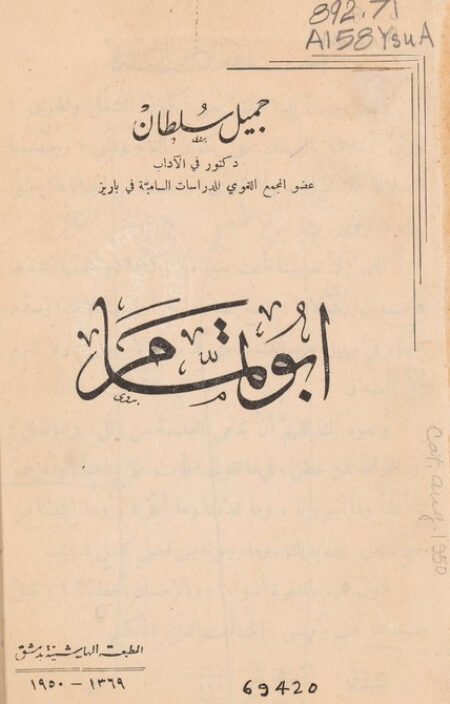 892.71
A158YsuA
جميل سُلطان
دكتور في الآداب
عضو المجمع اللغوي للدراسات الساميّة في باريز
ابو تمّام
بدوي
Cat. aug. 1950
المطبعة الهاشمية بدمشق
١٣٦٩ - ١٩٥٠
69420